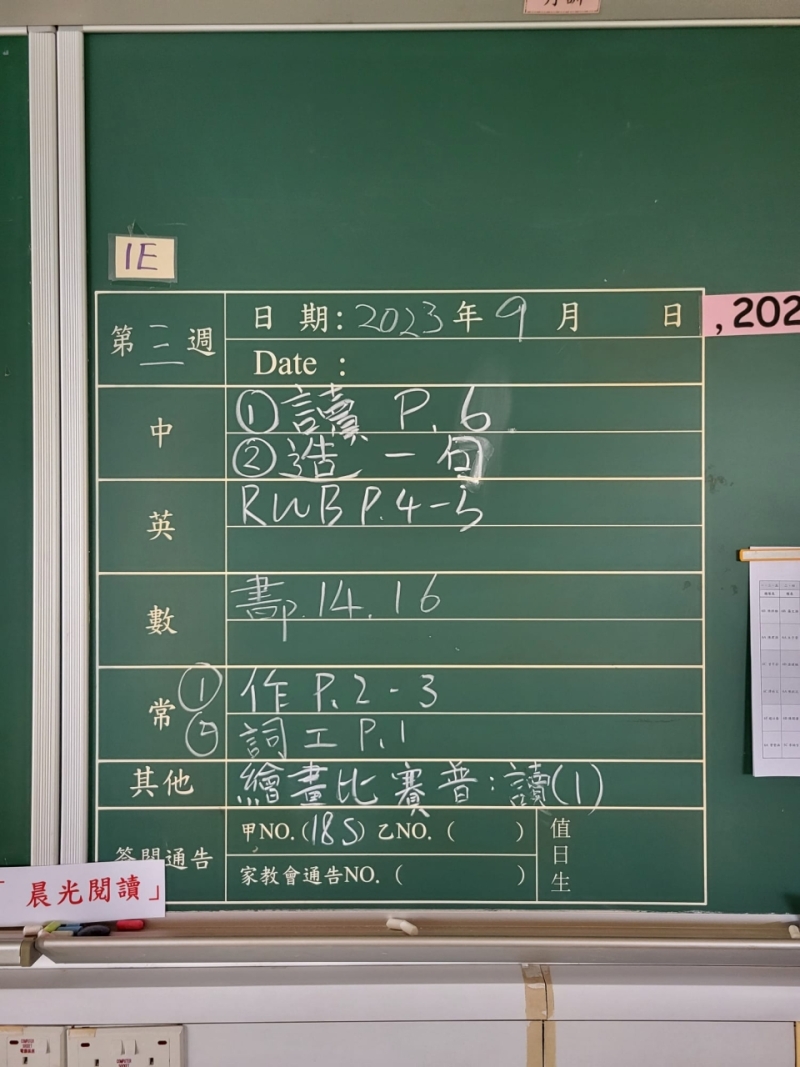 1E
第三週
日 期：2023年9月 日
Date :
, 202
中
①讀 P.6
②造一句
英
RWB P.4-5
數
書p.14.16
常
①作 P.2-3
②詞工 P.1
其他
繪畫比賽 普：讀(1)
簽閱通告
甲NO.(18S) 乙NO.( )
家教會通告NO.( )
值日生
「晨光閱讀」